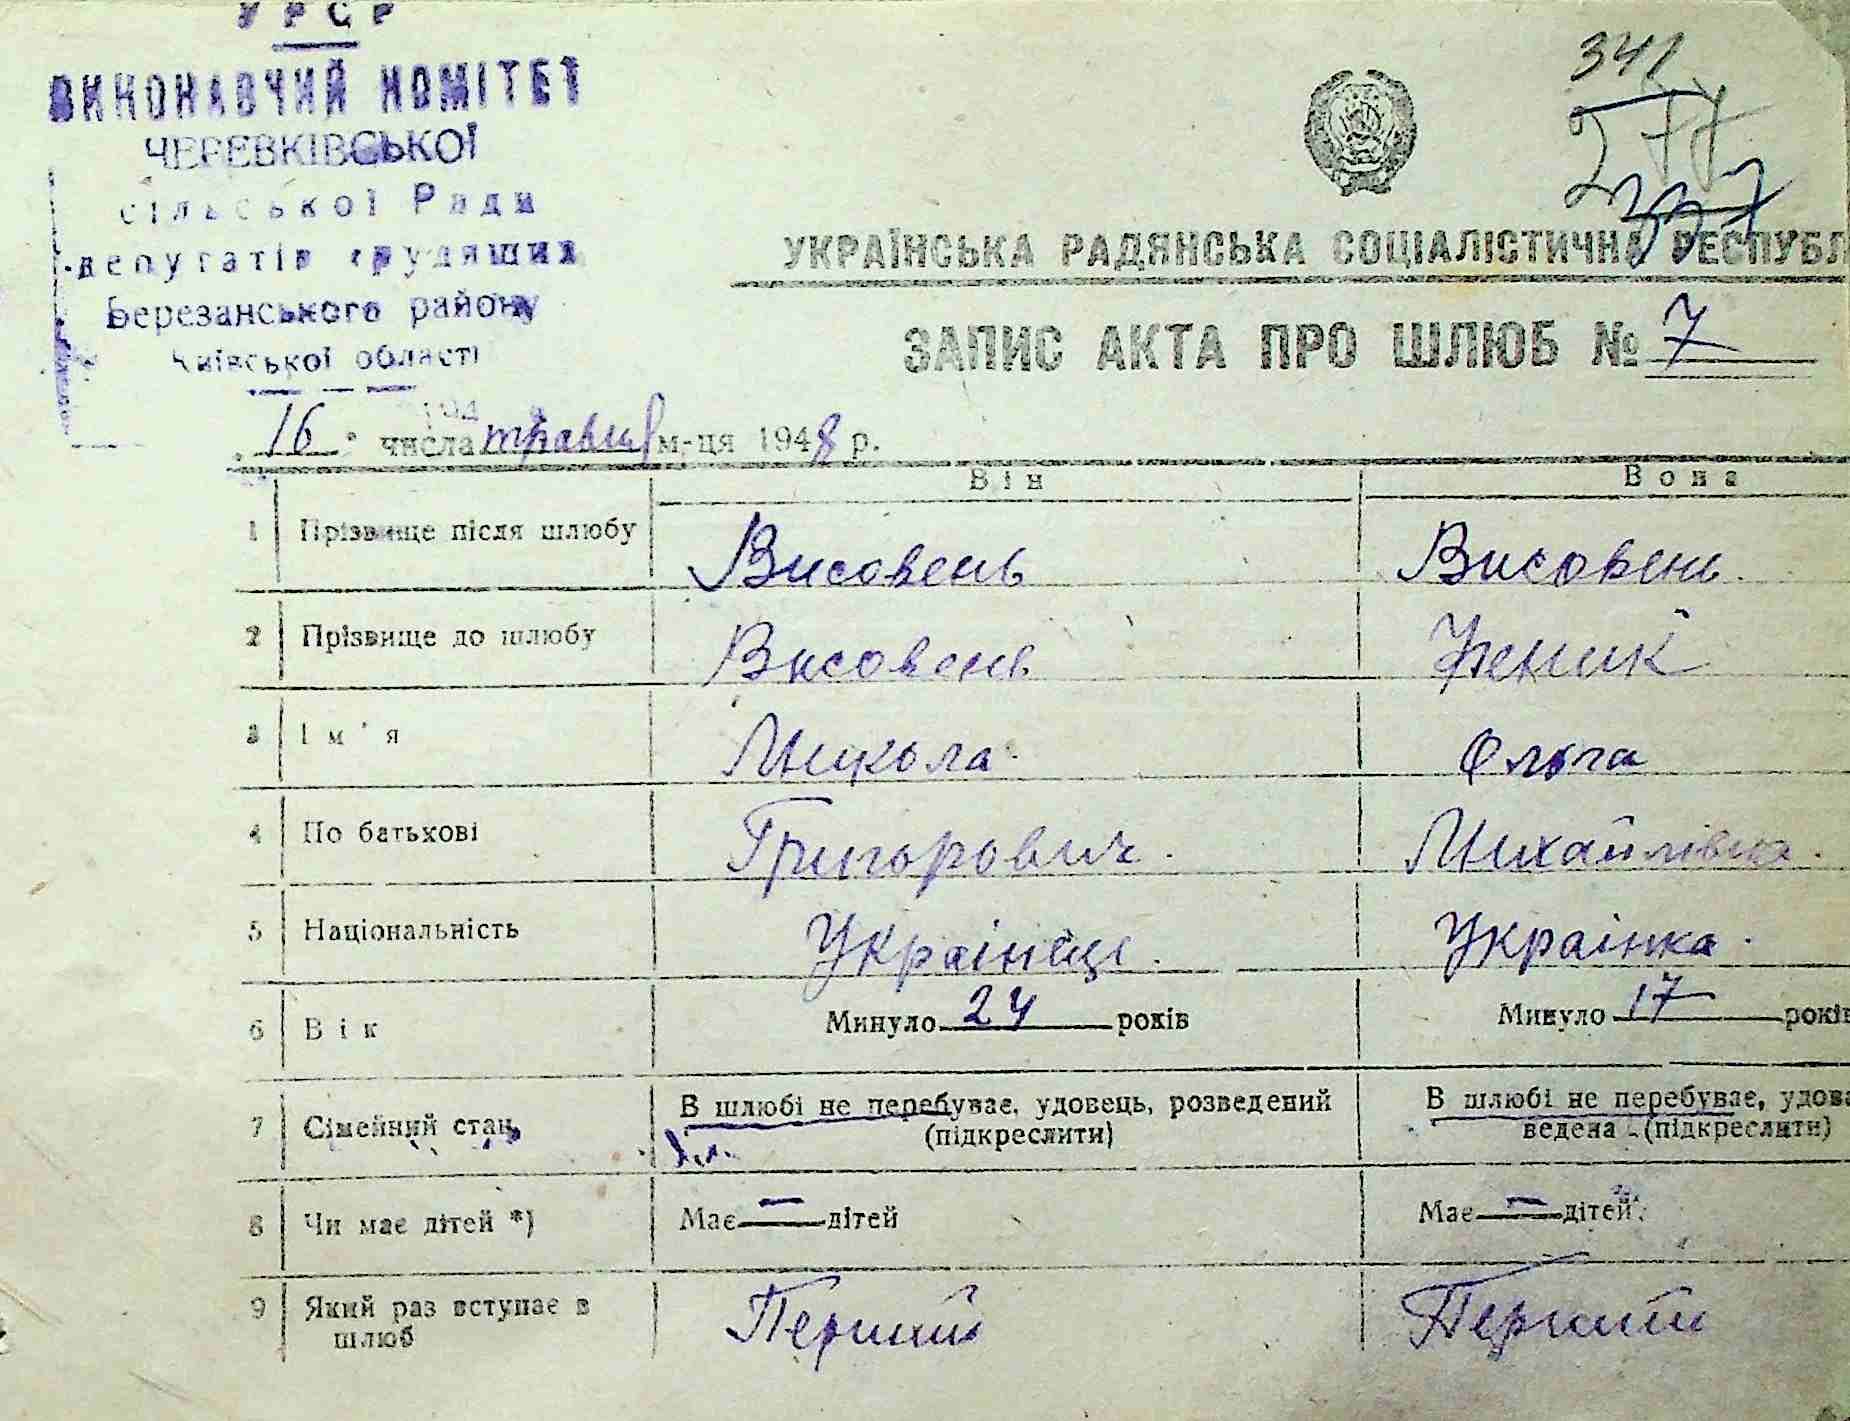 УРСР
ВИКОНАВЧИЙ КОМІТЕТ
ЧЕРЕВКІВСЬКОЇ
сільської Ради
депутатів трудящих
Березанського району
Київської області
341
277
337
УКРАЇНСЬКА РАДЯНСЬКА СОЦІАЛІСТИЧНА РЕСПУБЛ
ЗАПИС АКТА ПРО ШЛЮБ № 7
194
„16" числа травня м-ця 1948 р.
Він Вона
1 Прізвище після шлюбу Висовень Висовень
2 Прізвище до шлюбу Висовень
3 Ім'я Микола Ольга
4 По батькові Григорович Михайлівна
5 Національність Українець Українка
6 Вік Минуло 24 років Минуло 17 років
7 Сімейний стан В шлюбі не перебуває, удовець, розведений В шлюбі не перебуває, удова
(підкреслити) ведена (підкреслити)
8 Чи має дітей *) Має — дітей Має — дітей
9 Який раз вступає в Перший Перший
шлюб